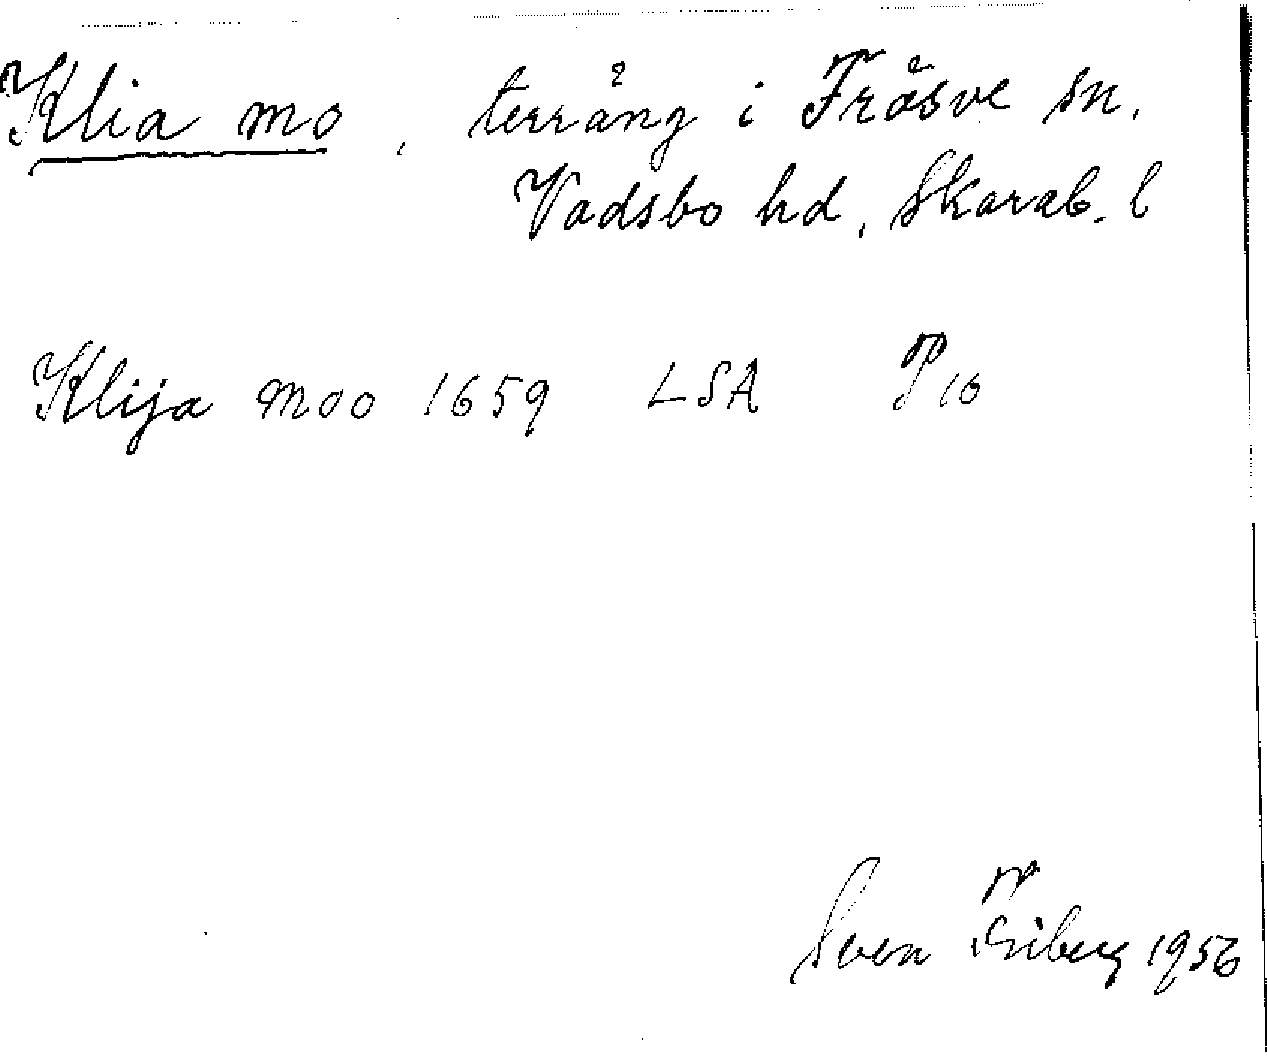 Klia mo, terräng i Fräsve sn.
Vadsbo hd, Skarab. l
Klija moo 1659 LSA P 10
Sven Friberg 1956